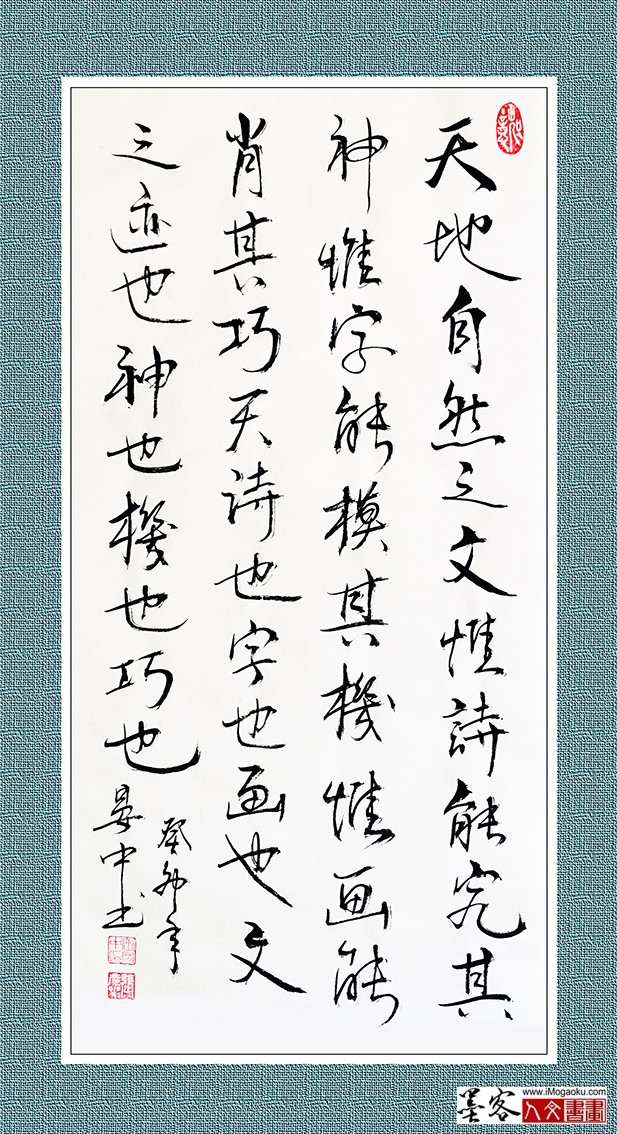 天地自然之文惟詩能究其
神惟字能模其機惟画能
肖其巧天詩也字也画也文
之迹也神也機也巧也
癸卯年
晏中书
墨客
www.iMogaoku.com
人文書畫